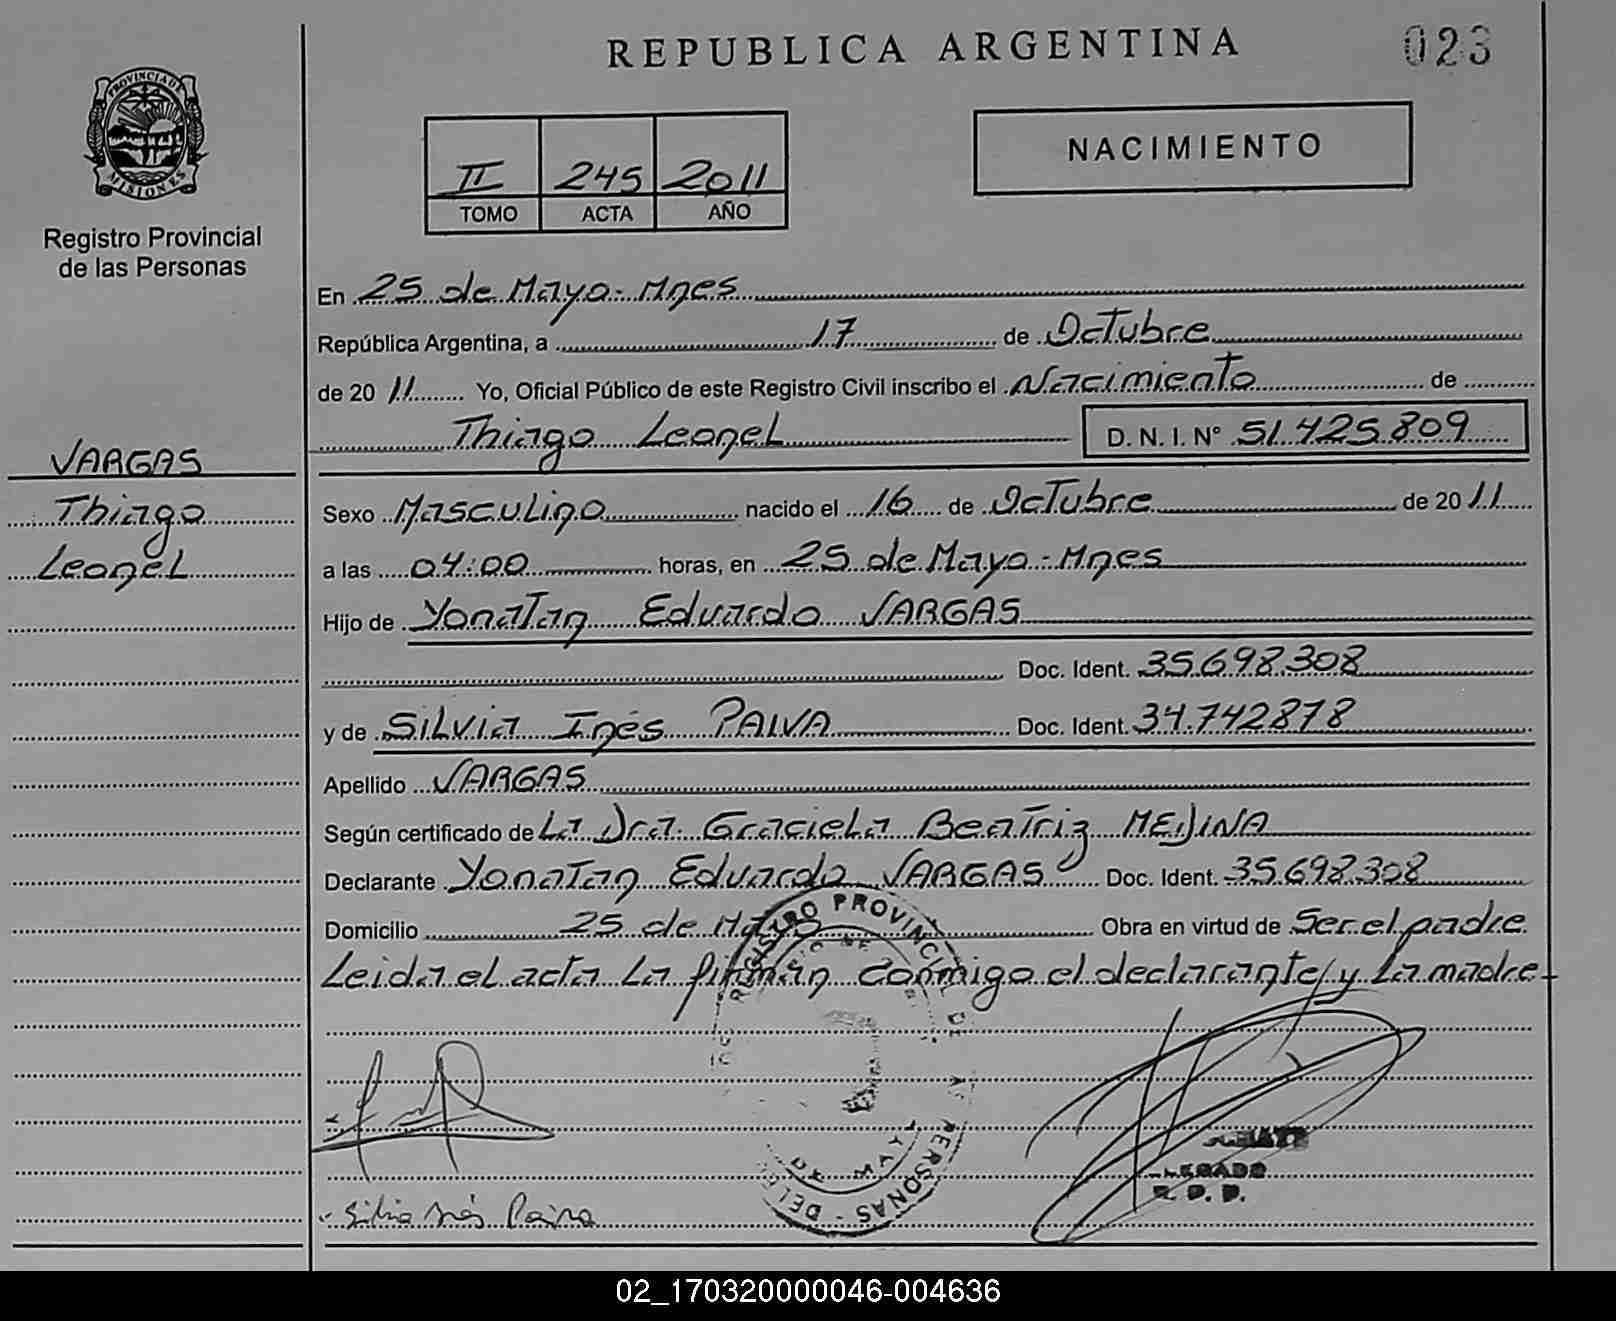 REPUBLICA ARGENTINA
023
PROVINCIA DE
MISIONES
Registro Provincial
de las Personas
II 245 2011
TOMO ACTA AÑO
NACIMIENTO
En 25 de Mayo - Mnes
República Argentina, a 17 de Octubre
de 20 11 Yo, Oficial Público de este Registro Civil inscribo el Nacimiento de
Thiago Leonel D. N. I. N° 51.425.809
VARGAS
Thiago
Leonel
Sexo Masculino nacido el 16 de Octubre de 20 11
a las 04:00 horas, en 25 de Mayo - Mnes
Hijo de Yonatan Eduardo VARGAS
Doc. Ident. 35.698.308
y de Silvia Inés PAIVA Doc. Ident. 34.742878
Apellido VARGAS
Según certificado de La Dra. Graciela Beatriz MEDINA
Declarante Yonatan Eduardo VARGAS Doc. Ident. 35.698.308
Domicilio 25 de Mayo Obra en virtud de Ser el padre
Leida el acta La firman conmigo el declarante y La madre
REGISTRO PROVINCIAL DE LAS PERSONAS
Silvia Inés Paiva
02_170320000046-004636